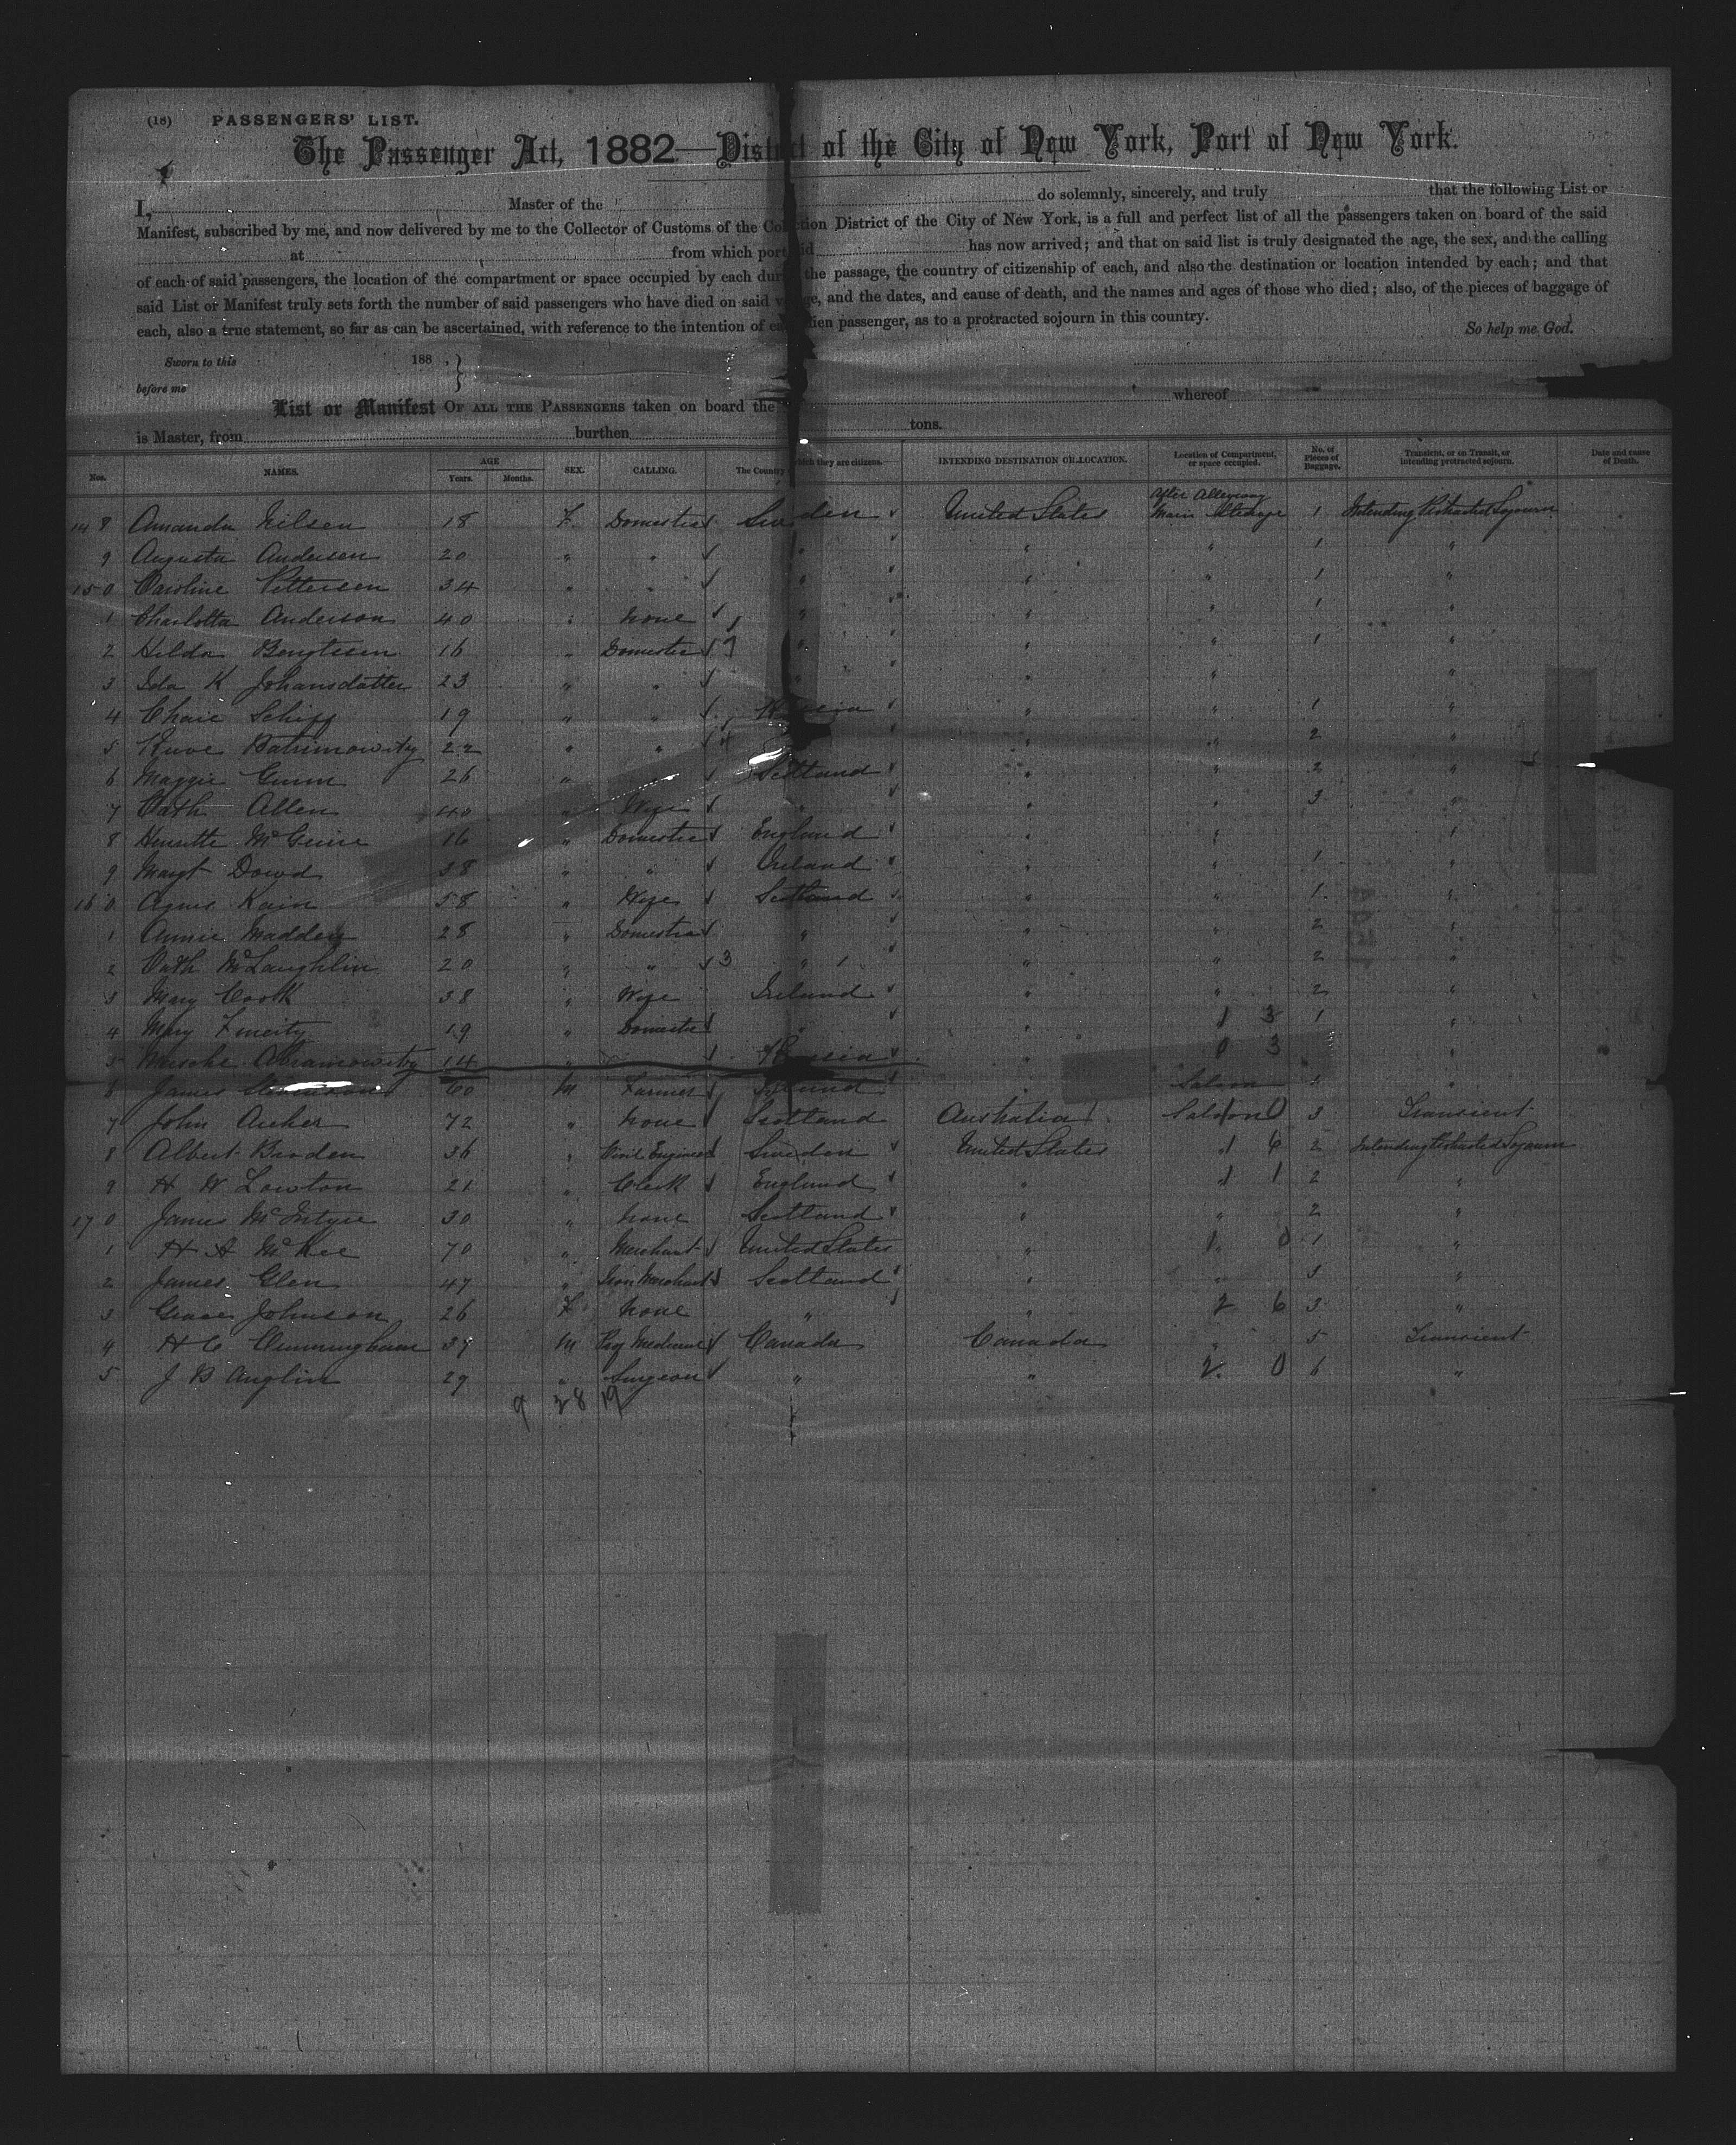 (18) PASSENGERS' LIST.
The Passenger Act, 1882—District of the City of New York, Port of New York.
I, Master of the do solemnly, sincerely, and truly that the following List or
Manifest, subscribed by me, and now delivered by me to the Collector of Customs of the Collection District of the City of New York, is a full and perfect list of all the passengers taken on board of the said
at from which port said has now arrived; and that on said list is truly designated the age, the sex, and the calling
of each of said passengers, the location of the compartment or space occupied by each during the passage, the country of citizenship of each, and also the destination or location intended by each; and that
said List or Manifest truly sets forth the number of said passengers who have died on said voyage, and the dates, and cause of death, and the names and ages of those who died; also, of the pieces of baggage of
each, also a true statement, so far as can be ascertained, with reference to the intention of each alien passenger, as to a protracted sojourn in this country.
So help me God.
Sworn to this 188 .
before me
List or Manifest OF ALL THE PASSENGERS taken on board the whereof
is Master, from burthen tons.
Nos. NAMES. AGE Years. Months. SEX. CALLING. The Country of which they are citizens. INTENDING DESTINATION OR LOCATION. Location of Compartment, or space occupied. No. of Pieces of Baggage. Transient, or on Transit, or intending protracted sojourn. Date and cause of Death.
148 Amanda Nilsen 18 F. Domestic Sweden United States After Alleyway Main Steerage 1 Intending Protracted Sojourn
9 Augusta Andersen 20 " " " " " 1 "
150 Caroline Pettersen 34 " " " " " 1 "
1 Charlotta Anderson 40 " None " " " 1 "
2 Hilda Bengtssen 16 " Domestic " " " 1 "
3 Ida K Johansdatter 23 " " " " " "
4 Chaie Schiff 19 " " Russia " " 1 "
5 22 " " " " 2 "
6 Maggie Gunn 26 " Scotland " " 2 "
7 Cath Allen 40 " Wife " " " 3 "
8 Henrette McGuire 16 " Domestic England " " 1
9 Margt Dowd 38 " " Ireland " " 1 "
160 Agnes Kain 58 " Wife Scotland " " 1 "
1 Annie Madden 28 " Domestic " " " 2 "
2 Cath McLaughlin 20 " " 3 " " " 2 "
3 Mary Cook 38 " Wife Ireland " " 2 "
4 Mary 19 " Domestic " " 1 3 1 "
5 Abramowitz 14 " Russia " 0 3 "
6 James 60 M Farmer " Saloon
7 John Archer 72 " None Scotland Australia Saloon 0 3 Transient
8 Albert Broden 36 " Civil Engineer Sweden United States " 1 6 2 Intending Protracted Sojourn
9 H W Lowton 21 " Clerk England " " 1 1 2 "
170 James McIntyre 30 " None Scotland " " 2 "
1 H A McKee 70 " Merchant United States " 1 0 1 "
2 James Glen 47 " Iron Merchant Scotland " " 3 "
3 Grace Johnson 26 F None " " 2 6 3 "
4 H C Cunningham 37 M Canada Canada " 5 Transient
5 J B Anglin 29 " Surgeon " " 2 0 6 "
9 28 19